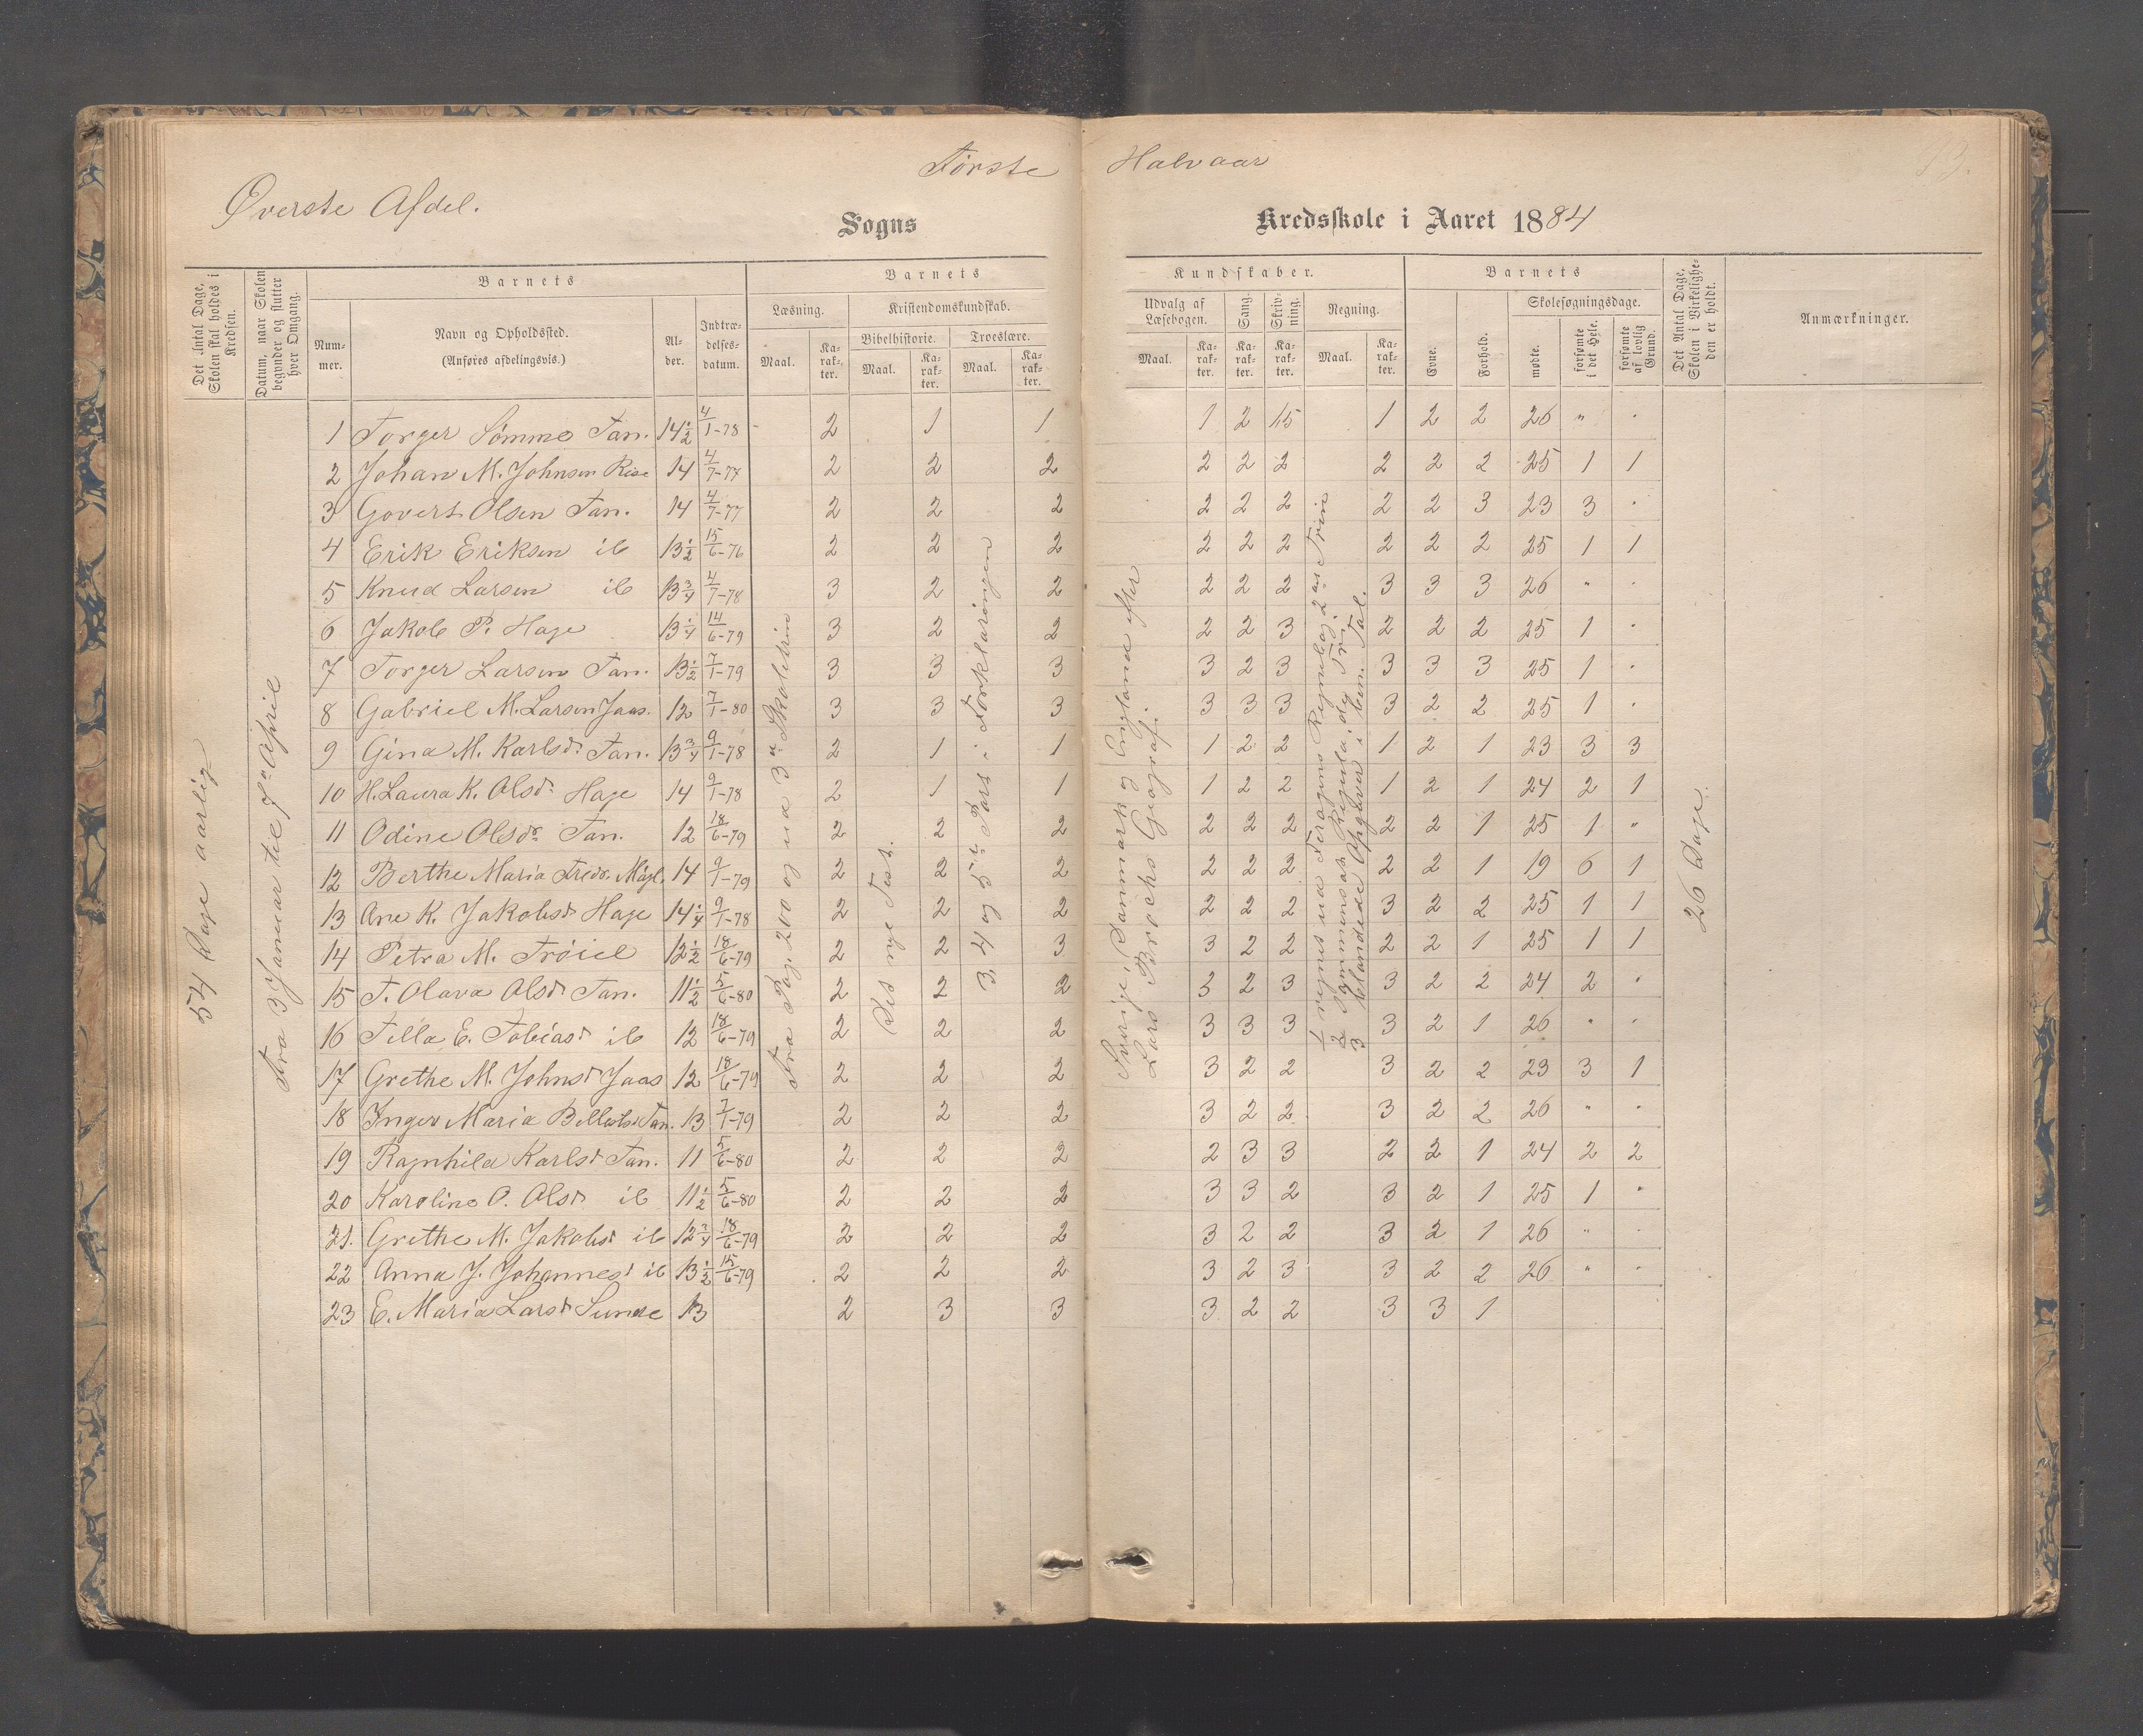 Første Halvaar
Øverste Afdel.
Sogns Kredsskole i Aaret 1884
Det Antal Dage, Skolen skal holdes i Kredsen.
Datum, naar Skolen begynder og slutter hver Omgang.
Barnets
Nummer.
Navn og Opholdssted.
(Anføres afdelingsvis.)
Alder.
Indtrædelsesdatum.
Barnets Kundskaber.
Læsning.
Maal.
Karakter.
Kristendomskundskab.
Bibelhistorie.
Maal.
Karakter.
Troeslære.
Maal.
Karakter.
Udvalg af Læsebogen.
Maal.
Karakter.
Sang.
Karakter.
Skrivning.
Karakter.
Regning.
Maal.
Karakter.
Barnets
Evne.
Forhold.
Skolesøgningsdage.
mødte.
forsømte i det Hele.
forsømte af lovlig Grund.
Det Antal Dage, Skolen i Virkeligheden er holdt.
Anmærkninger.
54 Dage aarlig
Fra 3 Januar til 7de April
Fra Pag. 200 og ud 3die Skoletrin
Det nye Test.
3, 4 og 5te Part i Forklaringen
Sverige, Danmark og England efter
Lars Brochs Geografi.
26 Dage.
1 Torger Sømme Tan. 14½ 4/1-78 2 1 1 1 2 1,5 1 2 2 26 " "
2 Johan M. Johnsen Risa 14 4/7-77 2 2 2 2 2 2 2 2 2 25 1 1
3 Govert Olsen Tan. 14 4/7-77 2 2 2 2 2 2 2 2 3 23 3 "
4 Erik Eriksen ib 13½ 15/6-76 2 2 2 2 2 2 2 2 2 25 1 1
5 Knud Larsen ib 13¾ 4/7-78 3 2 2 2 2 2 3 3 3 26 " "
6 Jakob P. Hage 13¼ 14/6-79 3 2 2 2 2 3 2 2 2 25 1 "
7 Torger Larsen Tan. 13½ 7/1-79 3 3 3 3 2 3 3 3 3 25 1 "
8 Gabriel M. Larsen Jaas. 12 7/1-80 3 3 3 3 3 3 3 2 2 25 1 "
9 Gina M. Karlsd. Tan. 13¾ 9/1-78 2 1 1 1 2 2 1 2 1 23 3 3
10 H. Laura K. Olsd. Hage 14 9/1-78 2 1 1 1 2 2 1 2 1 24 2 1
11 Odine Olsdr Tan. 12 18/6-79 2 2 2 2 2 2 2 2 1 25 1 "
12 Berthe Maria Fredr. Mægl. 14 9/1-79 2 2 2 2 2 2 2 2 1 19 6 1
13 Ane K. Jakobsd Hage 14¼ 9/1-78 2 2 2 2 2 2 3 2 2 25 1 1
14 Petra M. Trøiel 12½ 18/6-79 2 2 3 3 2 2 2 2 1 25 1 1
15 T. Olava Olsd. Tan. 11½ 5/6-80 2 2 2 3 2 3 3 2 2 24 2 "
16 Tilla E. Tobiasd ib 12 18/6-79 2 2 2 3 3 3 3 2 1 26 " "
17 Grethe M. Johnsd Jaas 12 18/6-79 2 2 2 3 2 2 3 2 2 23 3 1
18 Inger Maria Tan. 13 7/1-79 2 2 2 3 2 2 3 2 2 26 " "
19 Ragnhild Karlsd Tan. 11 5/6-80 2 2 2 2 3 3 2 2 1 24 2 2
20 Karoline O. Olsd ib 11½ 5/6-80 2 2 2 3 3 2 3 2 1 25 1 "
21. Grethe M. Jakobsd ib 12¾ 18/6-79 2 2 2 3 2 2 3 2 1 26 " "
22 Anna J. Johannesd ib 13½ 15/6-79 2 2 2 3 2 3 3 2 2 26 " "
23 E. Maria Larsd Sunde 13 2 3 3 3 2 2 3 3 1